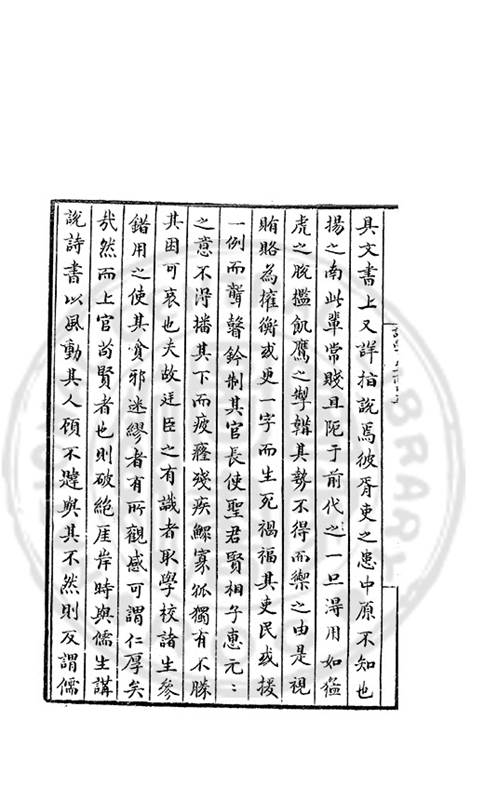 具文書上又詳指說焉彼胥吏之患中原不知也
揚之南此輩常賤且陋于前代之一旦得用如猛
虎之脫檻飢鷹之掣韝其勢不得而禦之由是視
賄賂為權衡或更一字而生死禍福其吏民或援
一例而聾瞽鈐制其官長使聖君賢相子惠元:
之意不得播其下而疲癃殘疾鰥寡孤獨有不勝
其困可哀也夫故廷臣之有識者取學校諸生參
錯用之使其貪邪迷繆者有所觀感可謂仁厚矣
㢤然而上官尚賢者也則破絕厓岸時與儒生講
說詩書以風動其人頑不韙與其不然則反謂儒